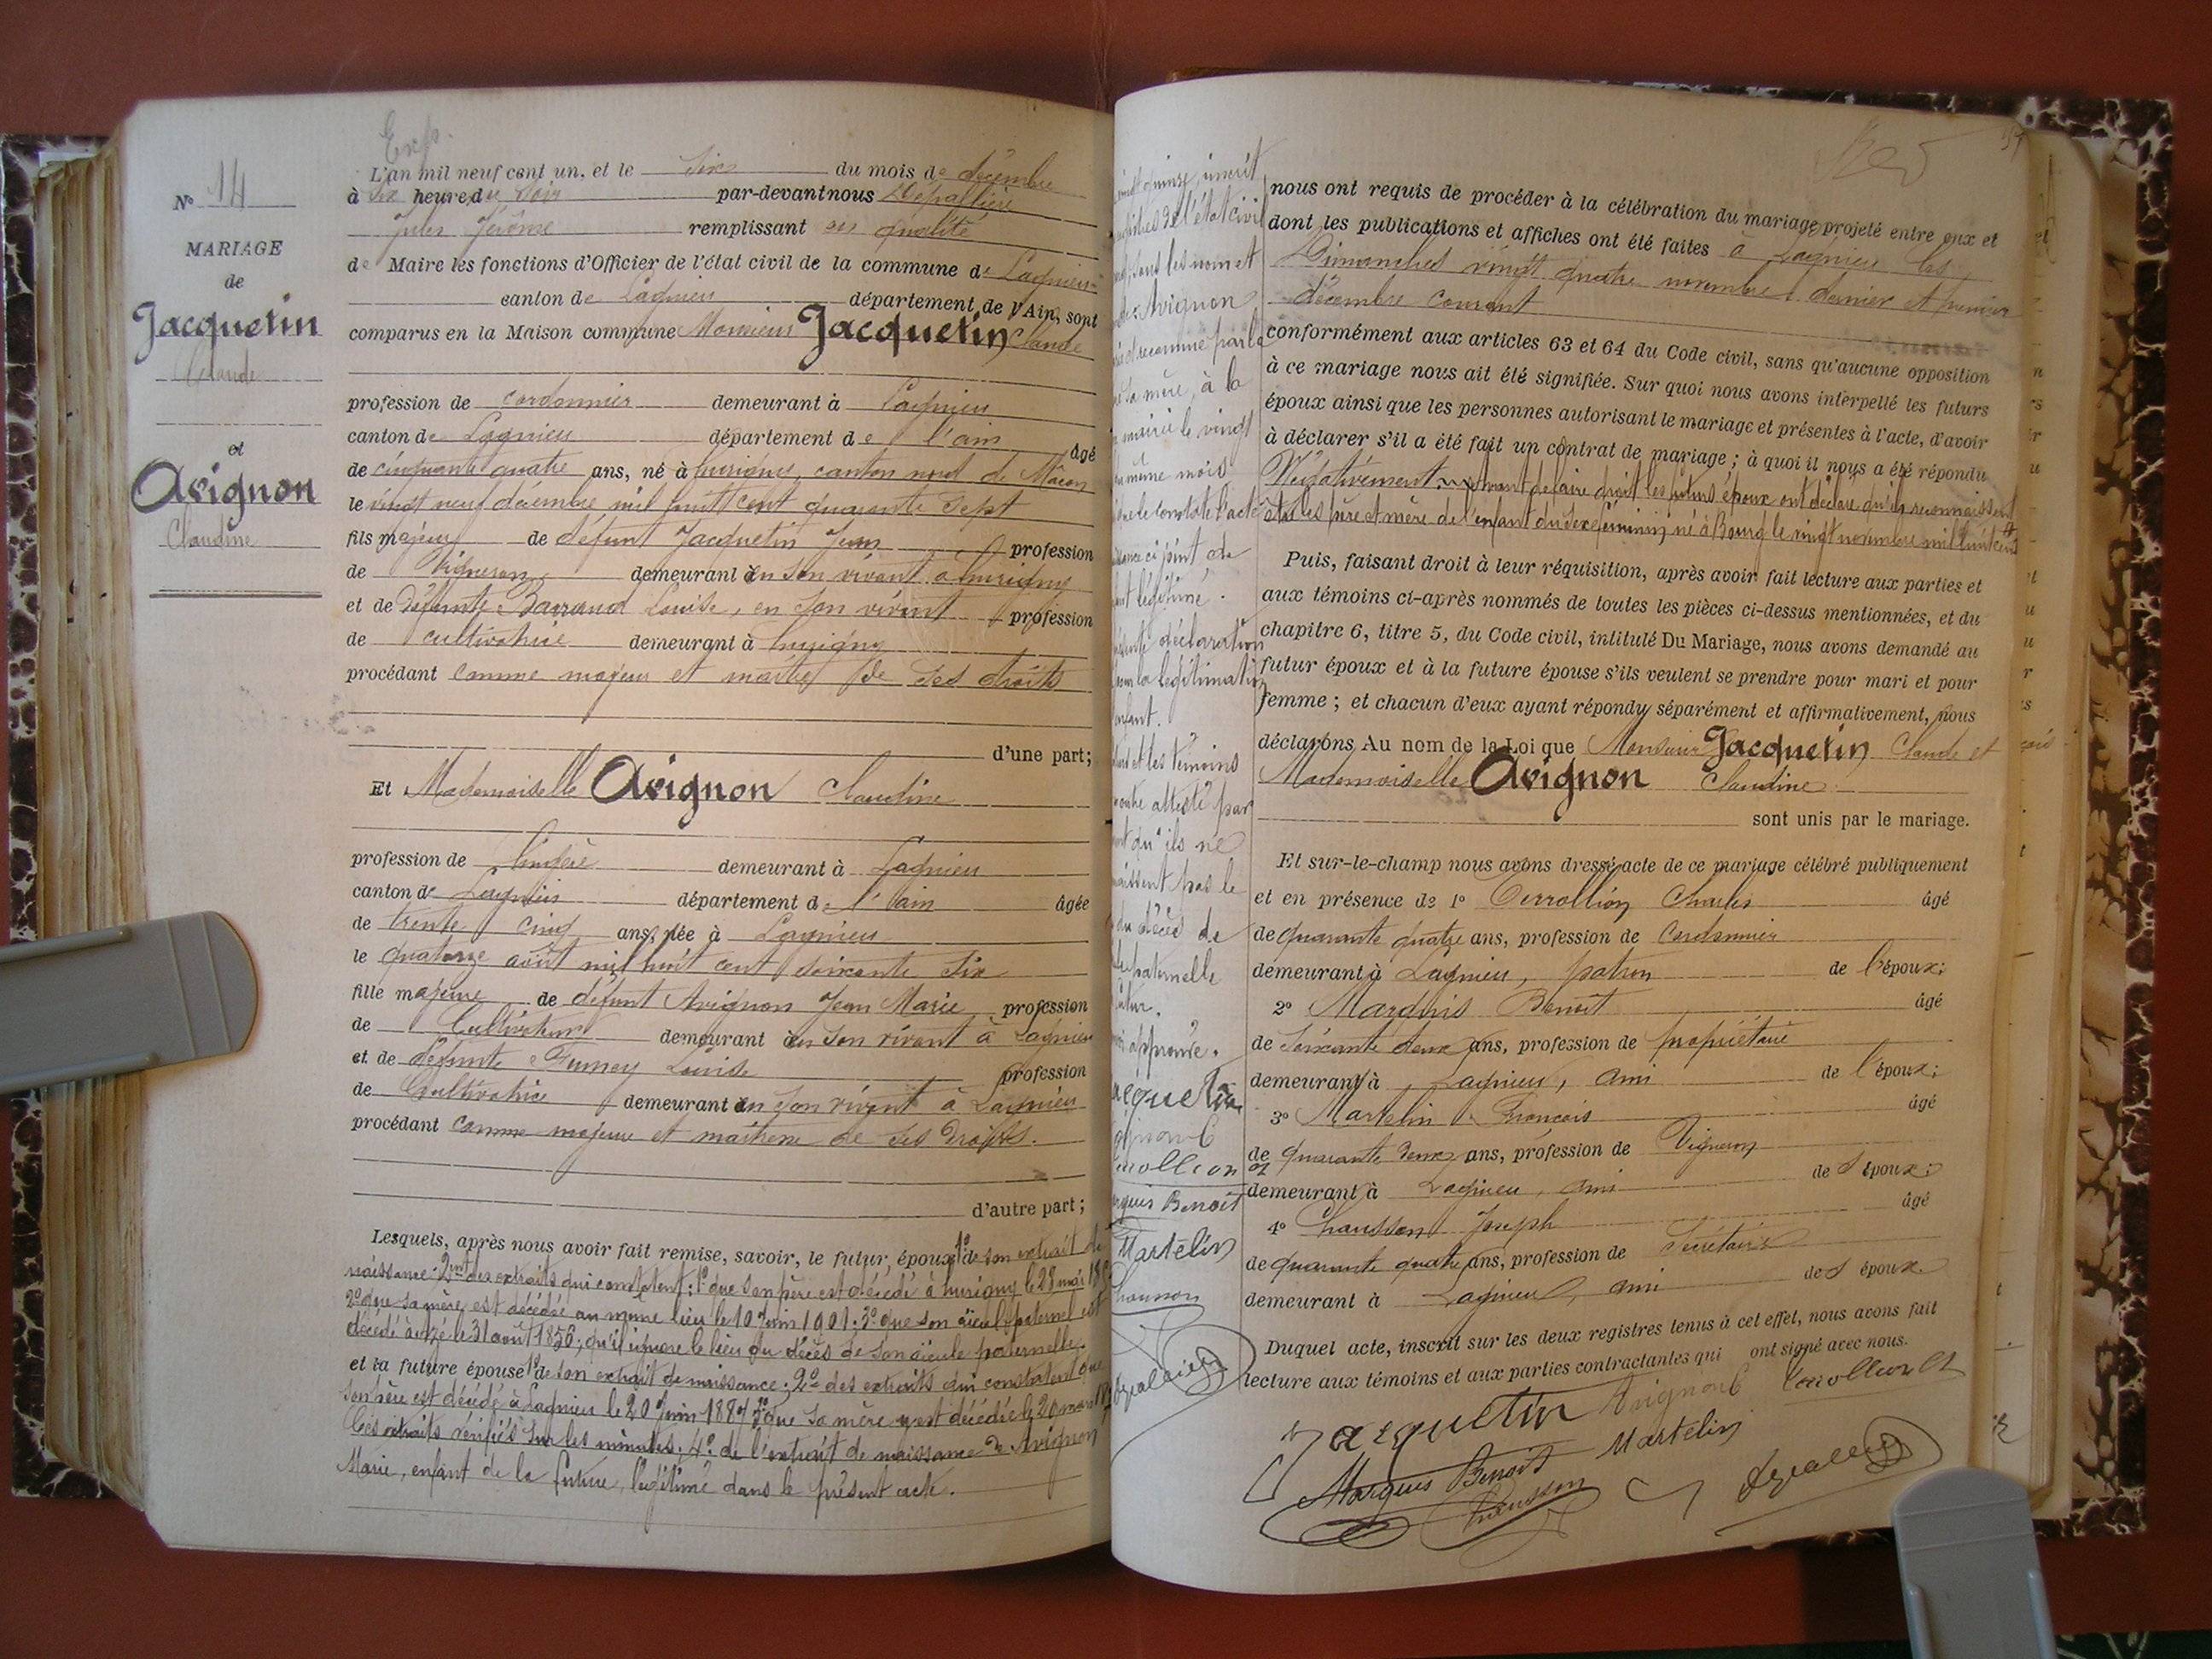 Exp.
N° 14
MARIAGE
de
Jacquetin
Claude
et
Avignon
Claudine
L'an mil neuf cent un, et le six du mois de décembre
à six heure du soir par-devant nous
Jules Jérôme remplissant en qualité
de Maire les fonctions d'Officier de l'état civil de la commune de Lagnieu
canton de Lagnieu département de l'Ain, sont
comparus en la Maison commune Monsieur Jacquetin Claude
profession de cordonnier demeurant à Lagnieu
canton de Lagnieu département de l'ain âgé
de cinquante quatre ans, né à hurigny, canton nord de Mâcon
le vingt neuf décembre mil huit cent quarante sept
fils majeur de défunt Jacquetin Jean profession
de Vigneron demeurant en son vivant à hurigny
et de défunte Barraud Louise, en son vivant profession
de cultivatrice demeurant à hurigny
procédant comme majeur et maître de ses droits
d'une part;
Et Mademoiselle Avignon Claudine
profession de lingère demeurant à Lagnieu
canton de Lagnieu département de l'ain âgée
de trente cinq ans, née à Lagnieu
le quatorze août mil huit cent soixante six
fille majeure de défunt Avignon Jean Marie profession
de Cultivateur demeurant en son vivant à Lagnieu
et de défunte Louise profession
de Cultivatrice demeurant en son vivant à Lagnieu
procédant comme majeure et maitresse de ses droits.
d'autre part;
Lesquels, après nous avoir fait remise, savoir, le futur époux 1° de son extrait de
naissance; 2ent des extraits qui constatent: 1° que son père est décédé à hurigny le 28 mai
2° que sa mère est décédée au même lieu le 10 Juin 1901; 3° que son aïeul paternel est
décédé à Azé le 31 août 1856; qu'il ignore le lieu du décès de son aïeule paternelle.
et la future épouse 1° de son extrait de naissance; 2° des extraits qui constatent que
son père est décédé à Lagnieu le 20 Juin 1887 3° que sa mère y est décédée le 20 mars
Ces extraits vérifiés sur les minutes. 4° de l'extrait de naissance de Avignon
Marie, enfant de la future, légitimé dans le présent acte.
quinze, inscrit
de l'état civil
sous les nom et
Avignon
reconnu par la
sa mère, à la
mairie le vingt
même mois
que le constate l'acte
ci joint, de
légitimé.
déclaration
la légitimation
enfant.
et les témoins
attesté par
qu'ils ne
pas le
décès de
paternelle
futur.
approuvé.
Benoit
Martelin
nous ont requis de procéder à la célébration du mariage projeté entre eux et
dont les publications et affiches ont été faites à Lagnieu les
Dimanches vingt quatre novembre dernier et premier
décembre courant
conformément aux articles 63 et 64 du Code civil, sans qu'aucune opposition
à ce mariage nous ait été signifiée. Sur quoi nous avons interpellé les futurs
époux ainsi que les personnes autorisant le mariage et présentes à l'acte, d'avoir
à déclarer s'il a été fait un contrat de mariage; à quoi il nous a été répondu
Négativement avant de faire droit les futurs époux ont déclaré qu'ils reconnaissent
être les père et mère de l'enfant du sexe féminin, né à Bourg le vingt novembre mil huit cent
Puis, faisant droit à leur réquisition, après avoir fait lecture aux parties et
aux témoins ci-après nommés de toutes les pièces ci-dessus mentionnées, et du
chapitre 6, titre 5, du Code civil, intitulé Du Mariage, nous avons demandé au
futur époux et à la future épouse s'ils veulent se prendre pour mari et pour
femme; et chacun d'eux ayant répondu séparément et affirmativement, nous
déclarons, Au nom de la Loi que Monsieur Jacquetin Claude et
Mademoiselle Avignon Claudine
sont unis par le mariage.
Et sur-le-champ nous avons dressé acte de ce mariage célébré publiquement
et en présence de 1° Charles âgé
de quarante quatre ans, profession de Cordonnier
demeurant à Lagnieu, patron de l'époux;
2° Marquis Benoît âgé
de soixante deux ans, profession de propriétaire
demeurant à Lagnieu, ami de l'époux;
3° Martelin François âgé
de quarante deux ans, profession de Vigneron
demeurant à Lagnieu, ami des époux;
4° Chausson Joseph âgé
de quarante quatre ans, profession de Secrétaire
demeurant à Lagnieu, ami des époux.
Duquel acte, inscrit sur les deux registres tenus à cet effet, nous avons fait
lecture aux témoins et aux parties contractantes qui ont signé avec nous.
Jacquetin Avignon C
Marquis Benoit Martelin
Chausson